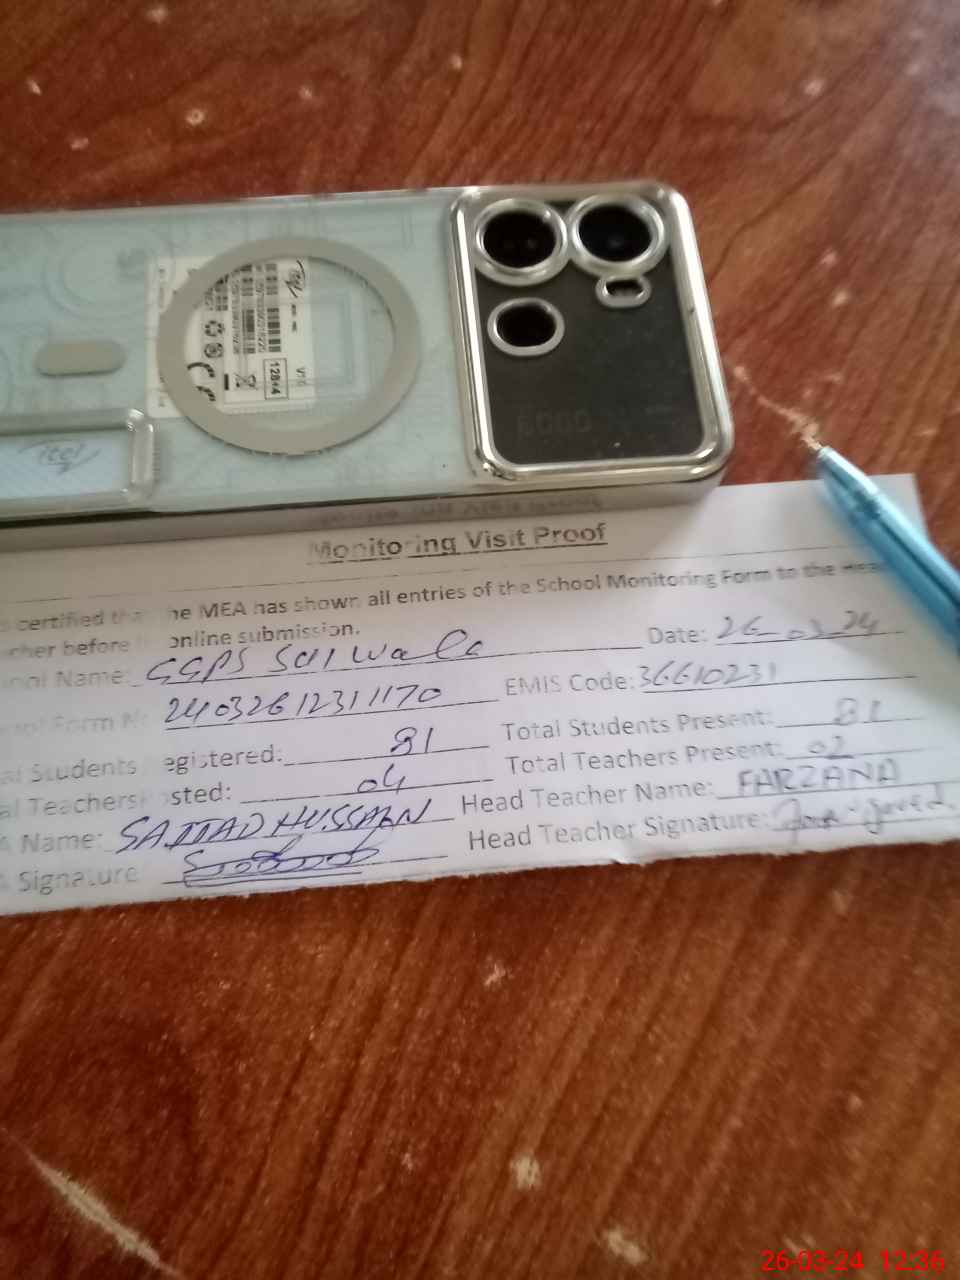 itel
128+4
V10
itel
Monitoring Visit Proof
certified the MEA has shown all entries of the School Monitoring Form to the
before online submission.
Name: GGPS Sai Wala Date: 26-03-24
Form N 2403261231 1170 EMIS Code: 36610231
Students egistered: 81 Total Students Present: 81
Teachers sted: 04 Total Teachers Present: 02
Name: SAJJAD HUSSAIN Head Teacher Name: FARZANA
Signature Head Teacher Signature:
26-03-24 12:36